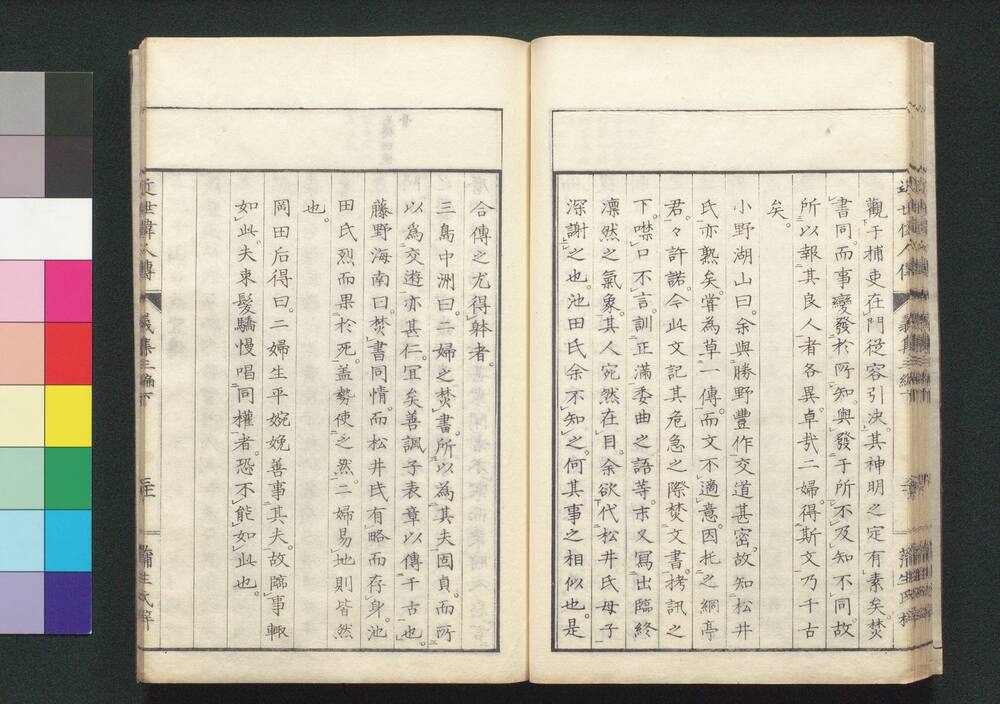 觀于捕吏在門從容引決。其神明之定有素矣。焚
書同。而事變發於所知。與發于所不及知不同。故
所以報其良人者各異。卓哉二婦。得斯文乃千古
矣。
小野湖山曰。余與勝野豐作交道甚密。故知松井
氏亦熟矣。嘗為草一傳。而文不適意。因托之綱亭
君。々許諾。今此文記其危急之際焚文書。拷訊之
下。噤口不言。訓正滿委曲之語等。末又寫出臨終
凛然之氣象。其人宛然在目。余欲代松井氏母子
深謝之也。池田氏余不知之。何其事之相似也。是
合傳之尤得躰者。
三島中洲曰。二婦之焚書。所以為其夫固貞。而所
以爲交遊亦甚仁。冝矣善諷子表章以傳千古也。
藤野海南曰。焚書同情。而松井氏有略而存身。池
田氏烈而果於死。盖勢使之然。二婦易地則皆然
也。
岡田后得曰。二婦生平婉娩善事其夫。故臨事輙
如此。夫束髮驕慢唱同權者。恐不能如此也。
近世偉人傳
義集
蒲生氏
近世偉人傳
義集三編下
三十
蒲生氏梓